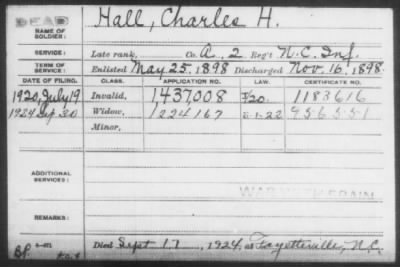 DEAD
NAME OF SOLDIER: Hall, Charles H.
SERVICE: Late rank, Co. A, 2 Reg't N.C. Inf.
TERM OF SERVICE: Enlisted May 25, 1898 Discharged Nov. 16, 1898.
DATE OF FILING. CLASS. APPLICATION NO. LAW. CERTIFICATE NO.
1920, July 19 Invalid, 1437,008 1183616
1924 Sep 30 Widow, 1224167 956551
Minor,
ADDITIONAL SERVICES:
WAR WITH SPAIN
REMARKS:
Died Sept 17, 1924, at Fayetteville, N.C.